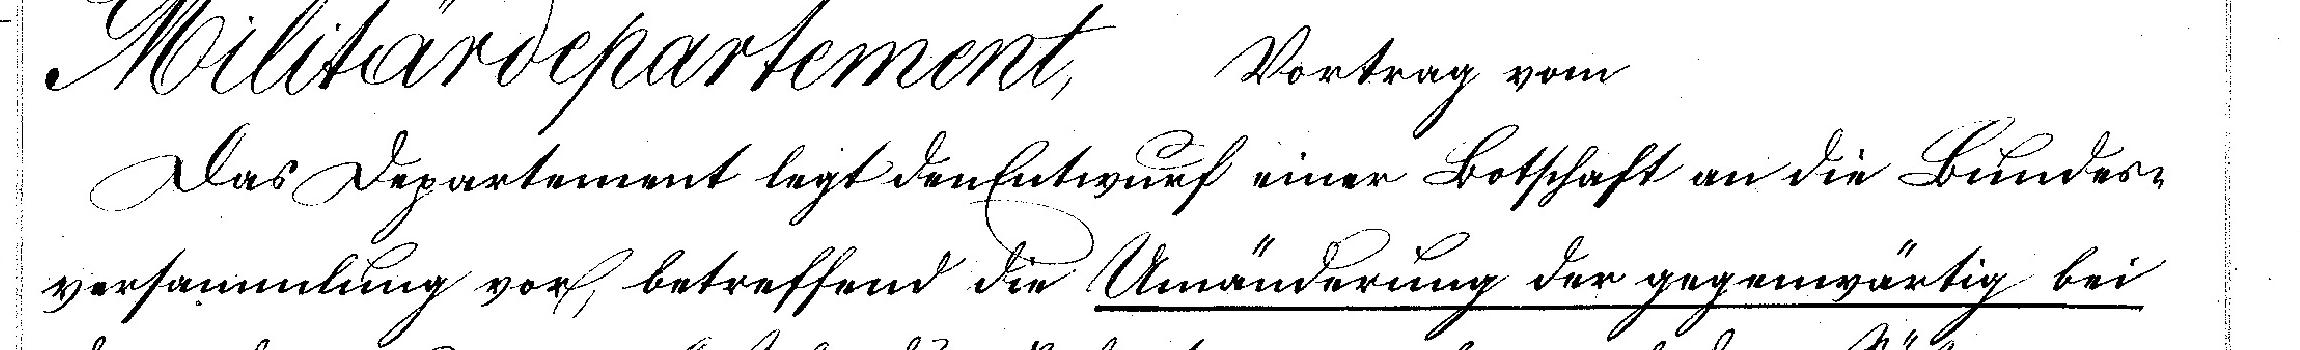 Militärdepartement, Vortrag vom
Das Departement legt den Entwurf einer Botschaft an die Bundes-
versammlung vor, betreffend die Umänderung der gegenwärtig bei